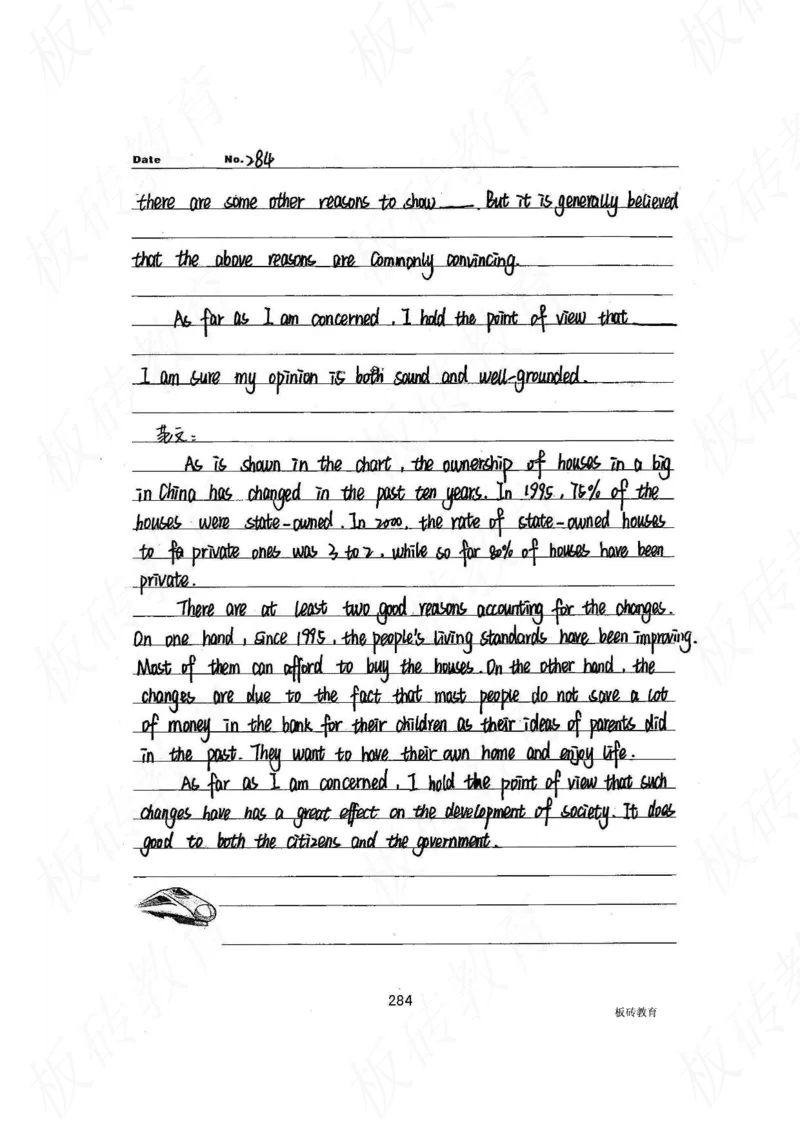 Date No. 284
there are some other reasons to show ____. But it is generally believed
that the above reasons are Commonly convincing.
As far as I am concerned, I hold the point of view that ____
I am sure my opinion is both sound and well-grounded.
范文:
As is shown in the chart, the ownership of houses in a big
in China has changed in the past ten years. In 1995, 75% of the
houses were state-owned. In 2000, the rate of state-owned houses
to fa private ones was 3 to 2, while so far 80% of houses have been
private.
There are at least two good reasons accounting for the changes.
On one hand, since 1995, the people's living standards have been improving.
Most of them can afford to buy the houses. On the other hand, the
changes are due to the fact that most people do not save a lot
of money in the bank for their children as their ideas of parents did
in the past. They want to have their own home and enjoy life.
As far as I am concerned, I hold the point of view that such
changes have has a great effect on the development of society. It does
good to both the citizens and the government.
284
板砖教育